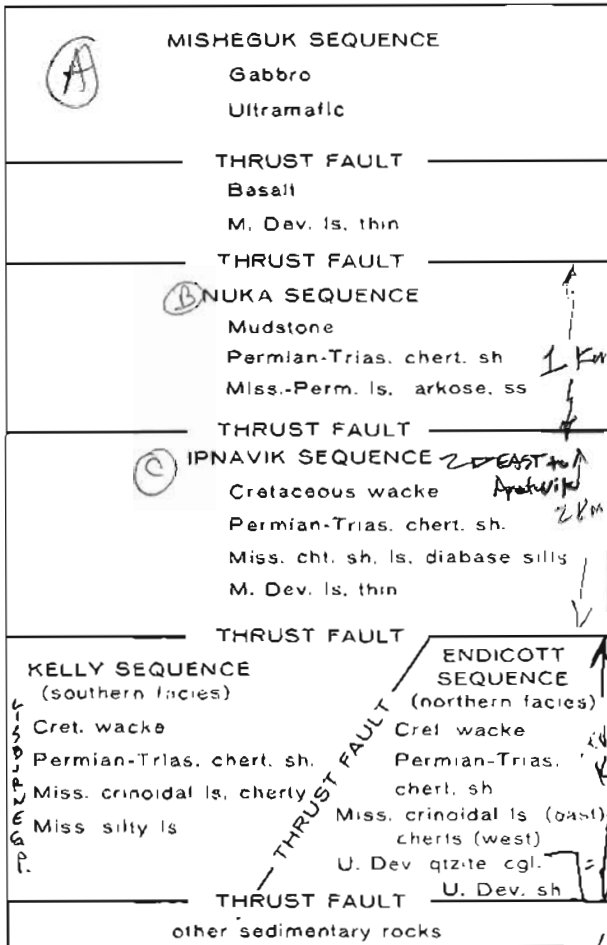 A
MISHEGUK SEQUENCE
Gabbro
Ultramafic
THRUST FAULT
Basalt
M. Dev. ls, thin
THRUST FAULT
B NUKA SEQUENCE
Mudstone
Permian-Trias. chert. sh
1 Km
Miss.-Perm. ls, arkose, ss
THRUST FAULT
C IPNAVIK SEQUENCE
EAST to
Cretaceous wacke
2 KM
Permian-Trias. chert. sh.
Miss. cht. sh, ls, diabase sills
M. Dev. ls, thin
THRUST FAULT
KELLY SEQUENCE
(southern facies)
LISBURNE GP.
Cret. wacke
Permian-Trias. chert. sh.
Miss. crinoidal ls, cherty
Miss silty ls
THRUST FAULT
ENDICOTT
SEQUENCE
(northern facies)
Cret wacke
Permian-Trias.
chert. sh
Miss. crinoidal ls (east)
cherts (west)
U. Dev qtzite cgl.
U. Dev. sh
THRUST FAULT
other sedimentary rocks